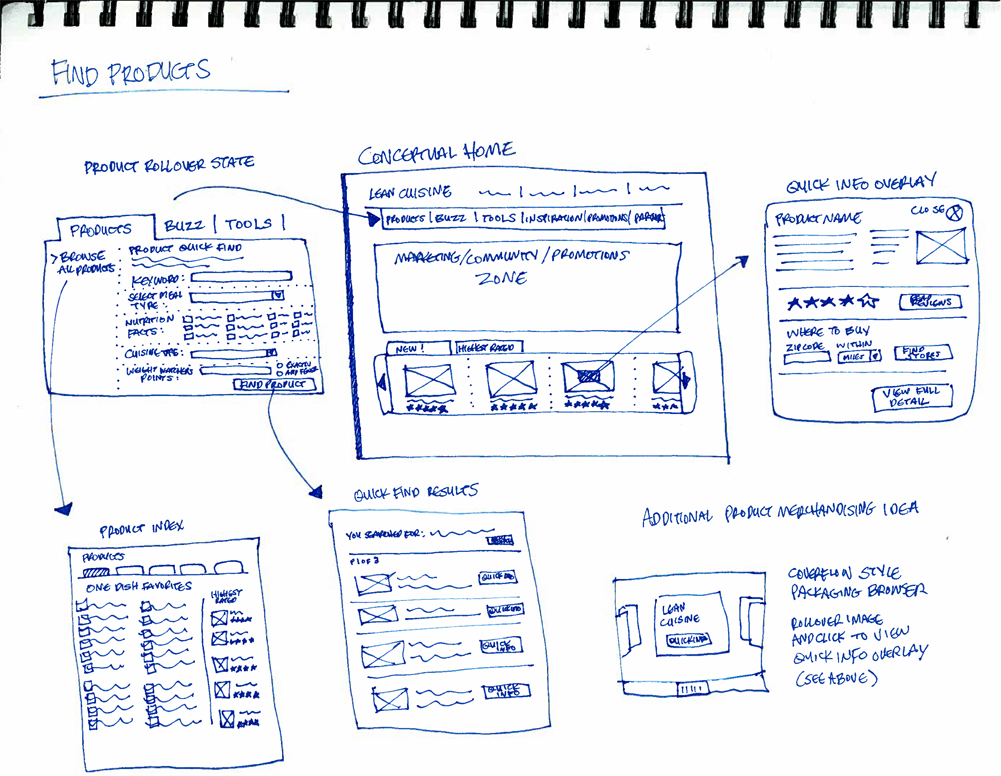 FIND PRODUCTS
PRODUCT ROLLOVER STATE
PRODUCTS
BUZZ | TOOLS |
> BROWSE
ALL PRODUCTS
PRODUCT QUICK FIND
KEYWORD:
SELECT MEAL
TYPE:
NUTRITION
FACTS:
CUISINE TYPE:
WEIGHT WATCHERS
POINTS:
EXACTLY
AND FEWER
FIND PRODUCT
CONCEPTUAL HOME
LEAN CUISINE
PRODUCTS | BUZZ | TOOLS | INSPIRATION | PROMOTIONS / PARTNER
MARKETING/COMMUNITY/PROMOTIONS
ZONE
NEW!
HIGHEST RATED
QUICK INFO OVERLAY
PRODUCT NAME
CLOSE X
READ
REVIEWS
WHERE TO BUY
ZIPCODE WITHIN
MILES
FIND
STORES
VIEW FULL
DETAIL
PRODUCT INDEX
PRODUCTS
ONE DISH FAVORITES
HIGHEST
RATED
QUICK FIND RESULTS
YOU SEARCHED FOR:
P 1 OF 3
QUICK INFO
QUICK INFO
QUICK
INFO
QUICK
INFO
ADDITIONAL PRODUCT MERCHANDISING IDEA
LEAN
CUISINE
QUICK INFO
COVERFLOW STYLE
PACKAGING BROWSER
ROLLOVER IMAGE
AND CLICK TO VIEW
QUICK INFO OVERLAY
(SEE ABOVE)